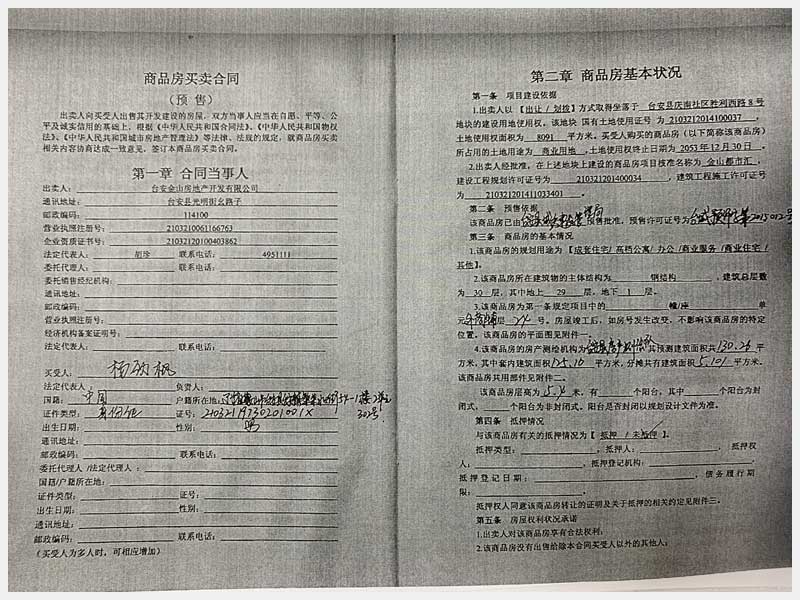 商品房买卖合同
（预 售）
出卖人向买受人出售其开发建设的房屋，双方当事人应当在自愿、平等、公
平及诚实信用的基础上，根据《中华人民共和国合同法》、《中华人民共和国物权
法》、《中华人民共和国城市房地产管理法》等法律、法规的规定，就商品房买卖
相关内容协商达成一致意见，签订本商品房买卖合同。
第一章 合同当事人
出卖人： 台安金山房地产开发有限公司
通讯地址： 台安县光明街幺路子
邮政编码： 114100
营业执照注册号： 2103210061166763
企业资质证书号： 21032120100403862
法定代表人： 胡珍 联系电话： 4951111
委托代理人： 联系电话：
委托销售经纪机构：
通讯地址：
邮政编码：
营业执照注册号：
经济机构备案证明号：
法定代表人： 联系电话：
买受人： 枫
法定代表人： 负责人：
国籍： 中国 户籍所在地：
证件类型： 身份证 证号： 21032119730201001X
出生日期： 性别： 男
通讯地址：
邮政编码： 联系电话：
委托代理人/法定代理人：
国籍/户籍所在地：
证件类型： 证号：
出生日期： 性别：
通讯地址：
邮政编码： 联系电话：
（买受人为多人时，可相应增加）
第二章 商品房基本状况
第一条 项目建设依据
1.出卖人以【出让 / 划拨】方式取得坐落于 台安县庆南社区胜利西路 8 号
地块的建设用地使用权。该地块 国有土地使用证号 为 2103212014100037 ，
土地使用权面积为 8091 平方米。买受人购买的商品房（以下简称该商品房）
所占用的土地用途为 商业用地 ，土地使用权终止日期为 2053 年 12 月 30 日。
2.出卖人经批准，在上述地块上建设的商品房项目核准名称为 金山都市汇 ，
建设工程规划许可证号为 210321201400034 ，建筑工程施工许可证号
为 210321201411033401 。
第二条 预售依据
该商品房已由 预售批准，预售许可证号为
第三条 商品房的基本情况
1.该商品房的规划用途为【成套住宅/ 高档公寓/ 办公 /商业服务 /商业住宅 /
其他】。
2.该商品房所在建筑物的主体结构为 钢结构 ，建筑总层数
为 30 层，其中地上 29 层，地下 1 层。
3.该商品房为第一条规定项目中的 幢/座 单
元 层 号。房屋竣工后，如房号发生改变，不影响该商品房的特定
位置。该商品房的平面图见附件一。
4.该商品房的房产测绘机构为 其预测建筑面积共 130.26 平
方米，其中套内建筑面积 125.16 平方米，分摊共有建筑面积 5.101 平方米。
该商品房共用部件见附件二。
该商品房层高为 米，有 个阳台，其中 个阳台为封
闭式， 个阳台为非封闭式。阳台是否封闭以规划设计文件为准。
第四条 抵押情况
与该商品房有关的抵押情况为【 抵押 / 未抵押 】。
抵押类型： ，抵押人： ，抵押权
人： ，抵押登记机构： ，
抵押登记日期： ，债务履行期
限： 。
抵押权人同意该商品房转让的证明及关于抵押的相关约定见附件三。
第五条 房屋权利状况承诺
1.出卖人对该商品房享有合法权利；
2.该商品房没有出售给除本合同买受人以外的其他人；